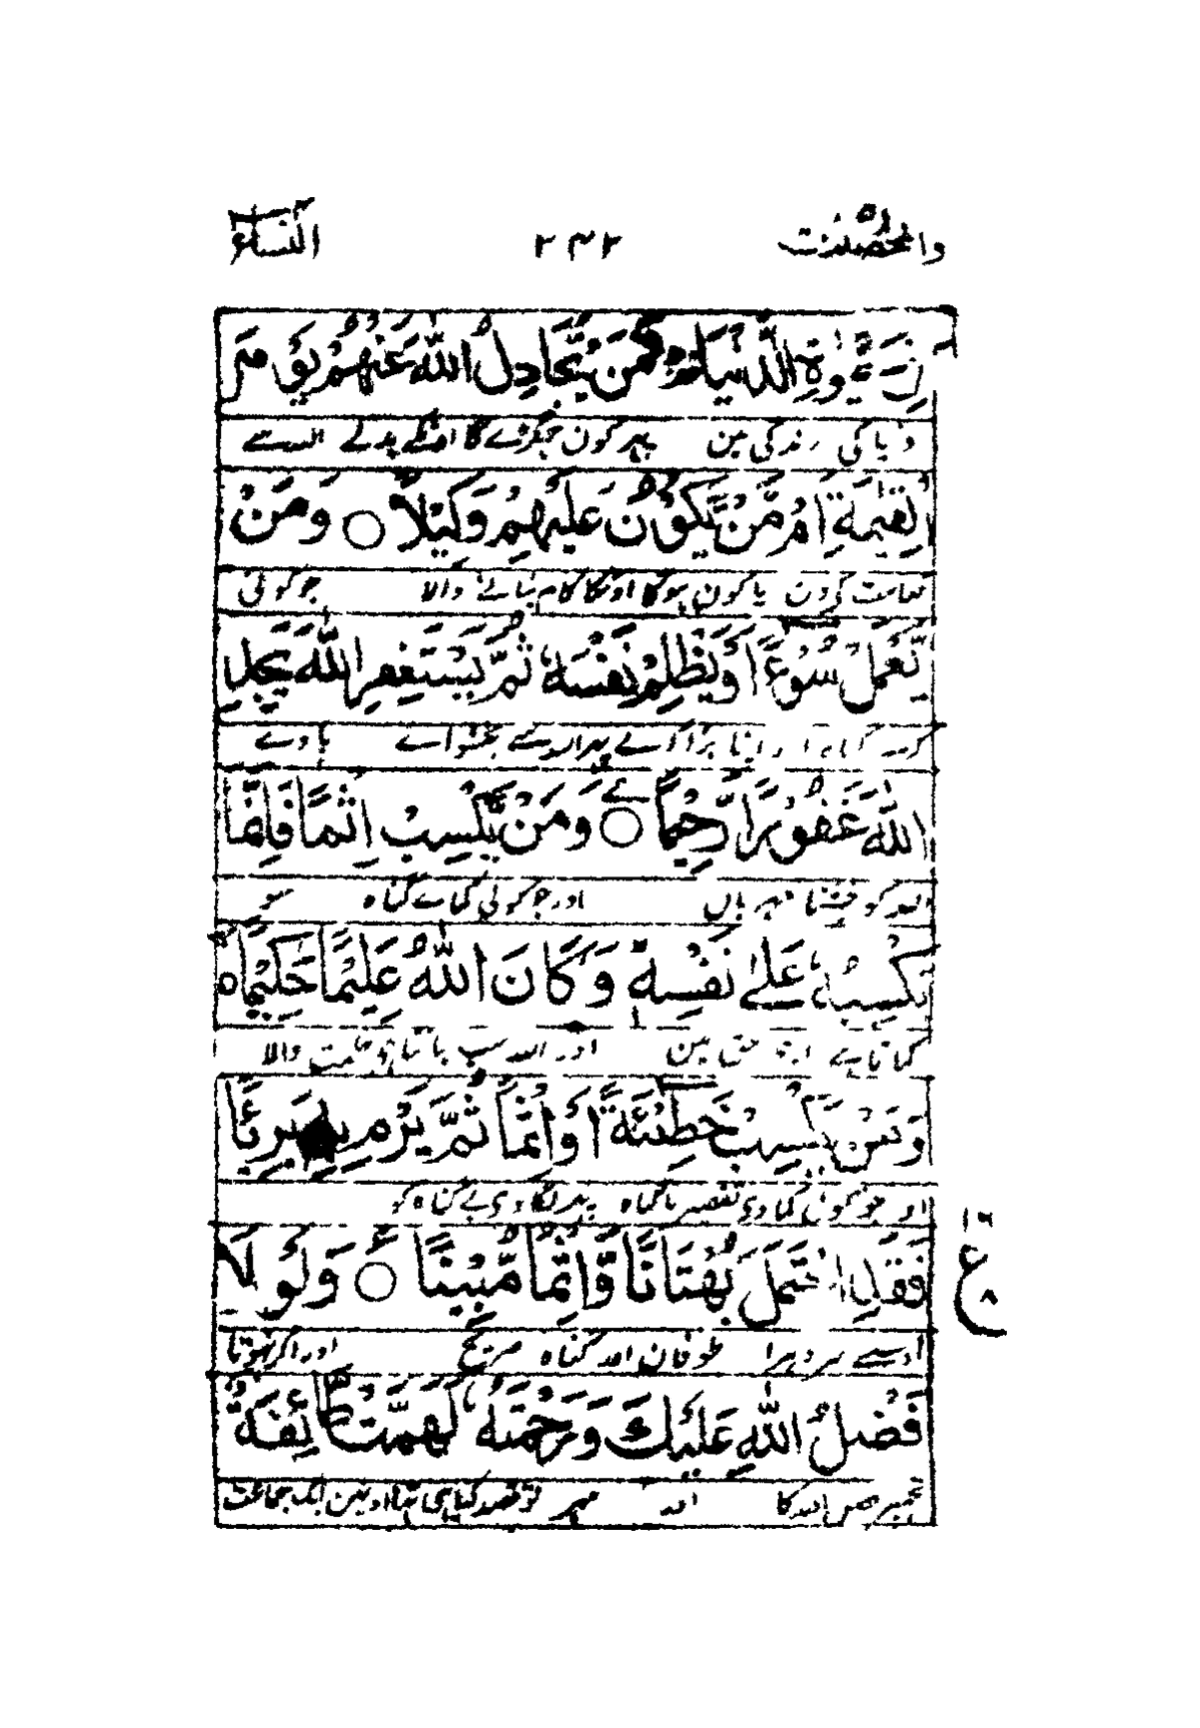 والمحصنت ۲۴۲ النساء
الدُّنْيَا فَمَنْ يُّجَادِلُ اللّٰهَ عَنْهُمْ يَوْمَ
کی زندگی مین پہر کون جھگڑے گا انکے بدلے اللہ سے
الْقِيٰمَةِ اَمْ مَّنْ يَّكُوْنُ عَلَيْهِمْ وَكِيْلًا ○ وَمَنْ
قیامت کے دن یا کون ہوگا اونکا کام بنانے والا جو کوئی
يَّعْمَلْ سُوْٓءًا اَوْ يَظْلِمْ نَفْسَهٗ ثُمَّ يَسْتَغْفِرِ اللّٰهَ يَجِدِ
اپنا برا کرے پہر اللہ سے بخشواے پاوے
اللّٰهَ غَفُوْرًا رَّحِيْمًا ○ وَمَنْ يَّكْسِبْ اِثْمًا فَاِنَّمَا
اللہ کو بخشتا مہربان اور جو کوئی کماے گناہ سو
يَكْسِبُهٗ عَلٰى نَفْسِهٖ وَكَانَ اللّٰهُ عَلِيْمًا حَكِيْمًا ○
کماتا ہے حق مین اور اللہ سب جانتا ہے حکمت والا
وَمَنْ يَّكْسِبْ خَطِيْٓئَةً اَوْ اِثْمًا ثُمَّ يَرْمِ بِهٖ بَرِيْٓئًا
اور جو کوئی کماوے تقصیر یا گناہ پہر لگاوے بے گناہ کو
فَقَدِ احْتَمَلَ بُهْتَانًا وَّاِثْمًا مُّبِيْنًا ○ وَلَوْ لَا
اوسنے سر دہرا طوفان اور گناہ صریح اور اگر نہوتا
۱۶ ع ۸
فَضْلُ اللّٰهِ عَلَيْكَ وَرَحْمَتُهٗ لَهَمَّتْ طَّآئِفَةٌ
فضل اللہ کا اور مہر تو قصد کیا ہی تہا اونمین ایک جماعت